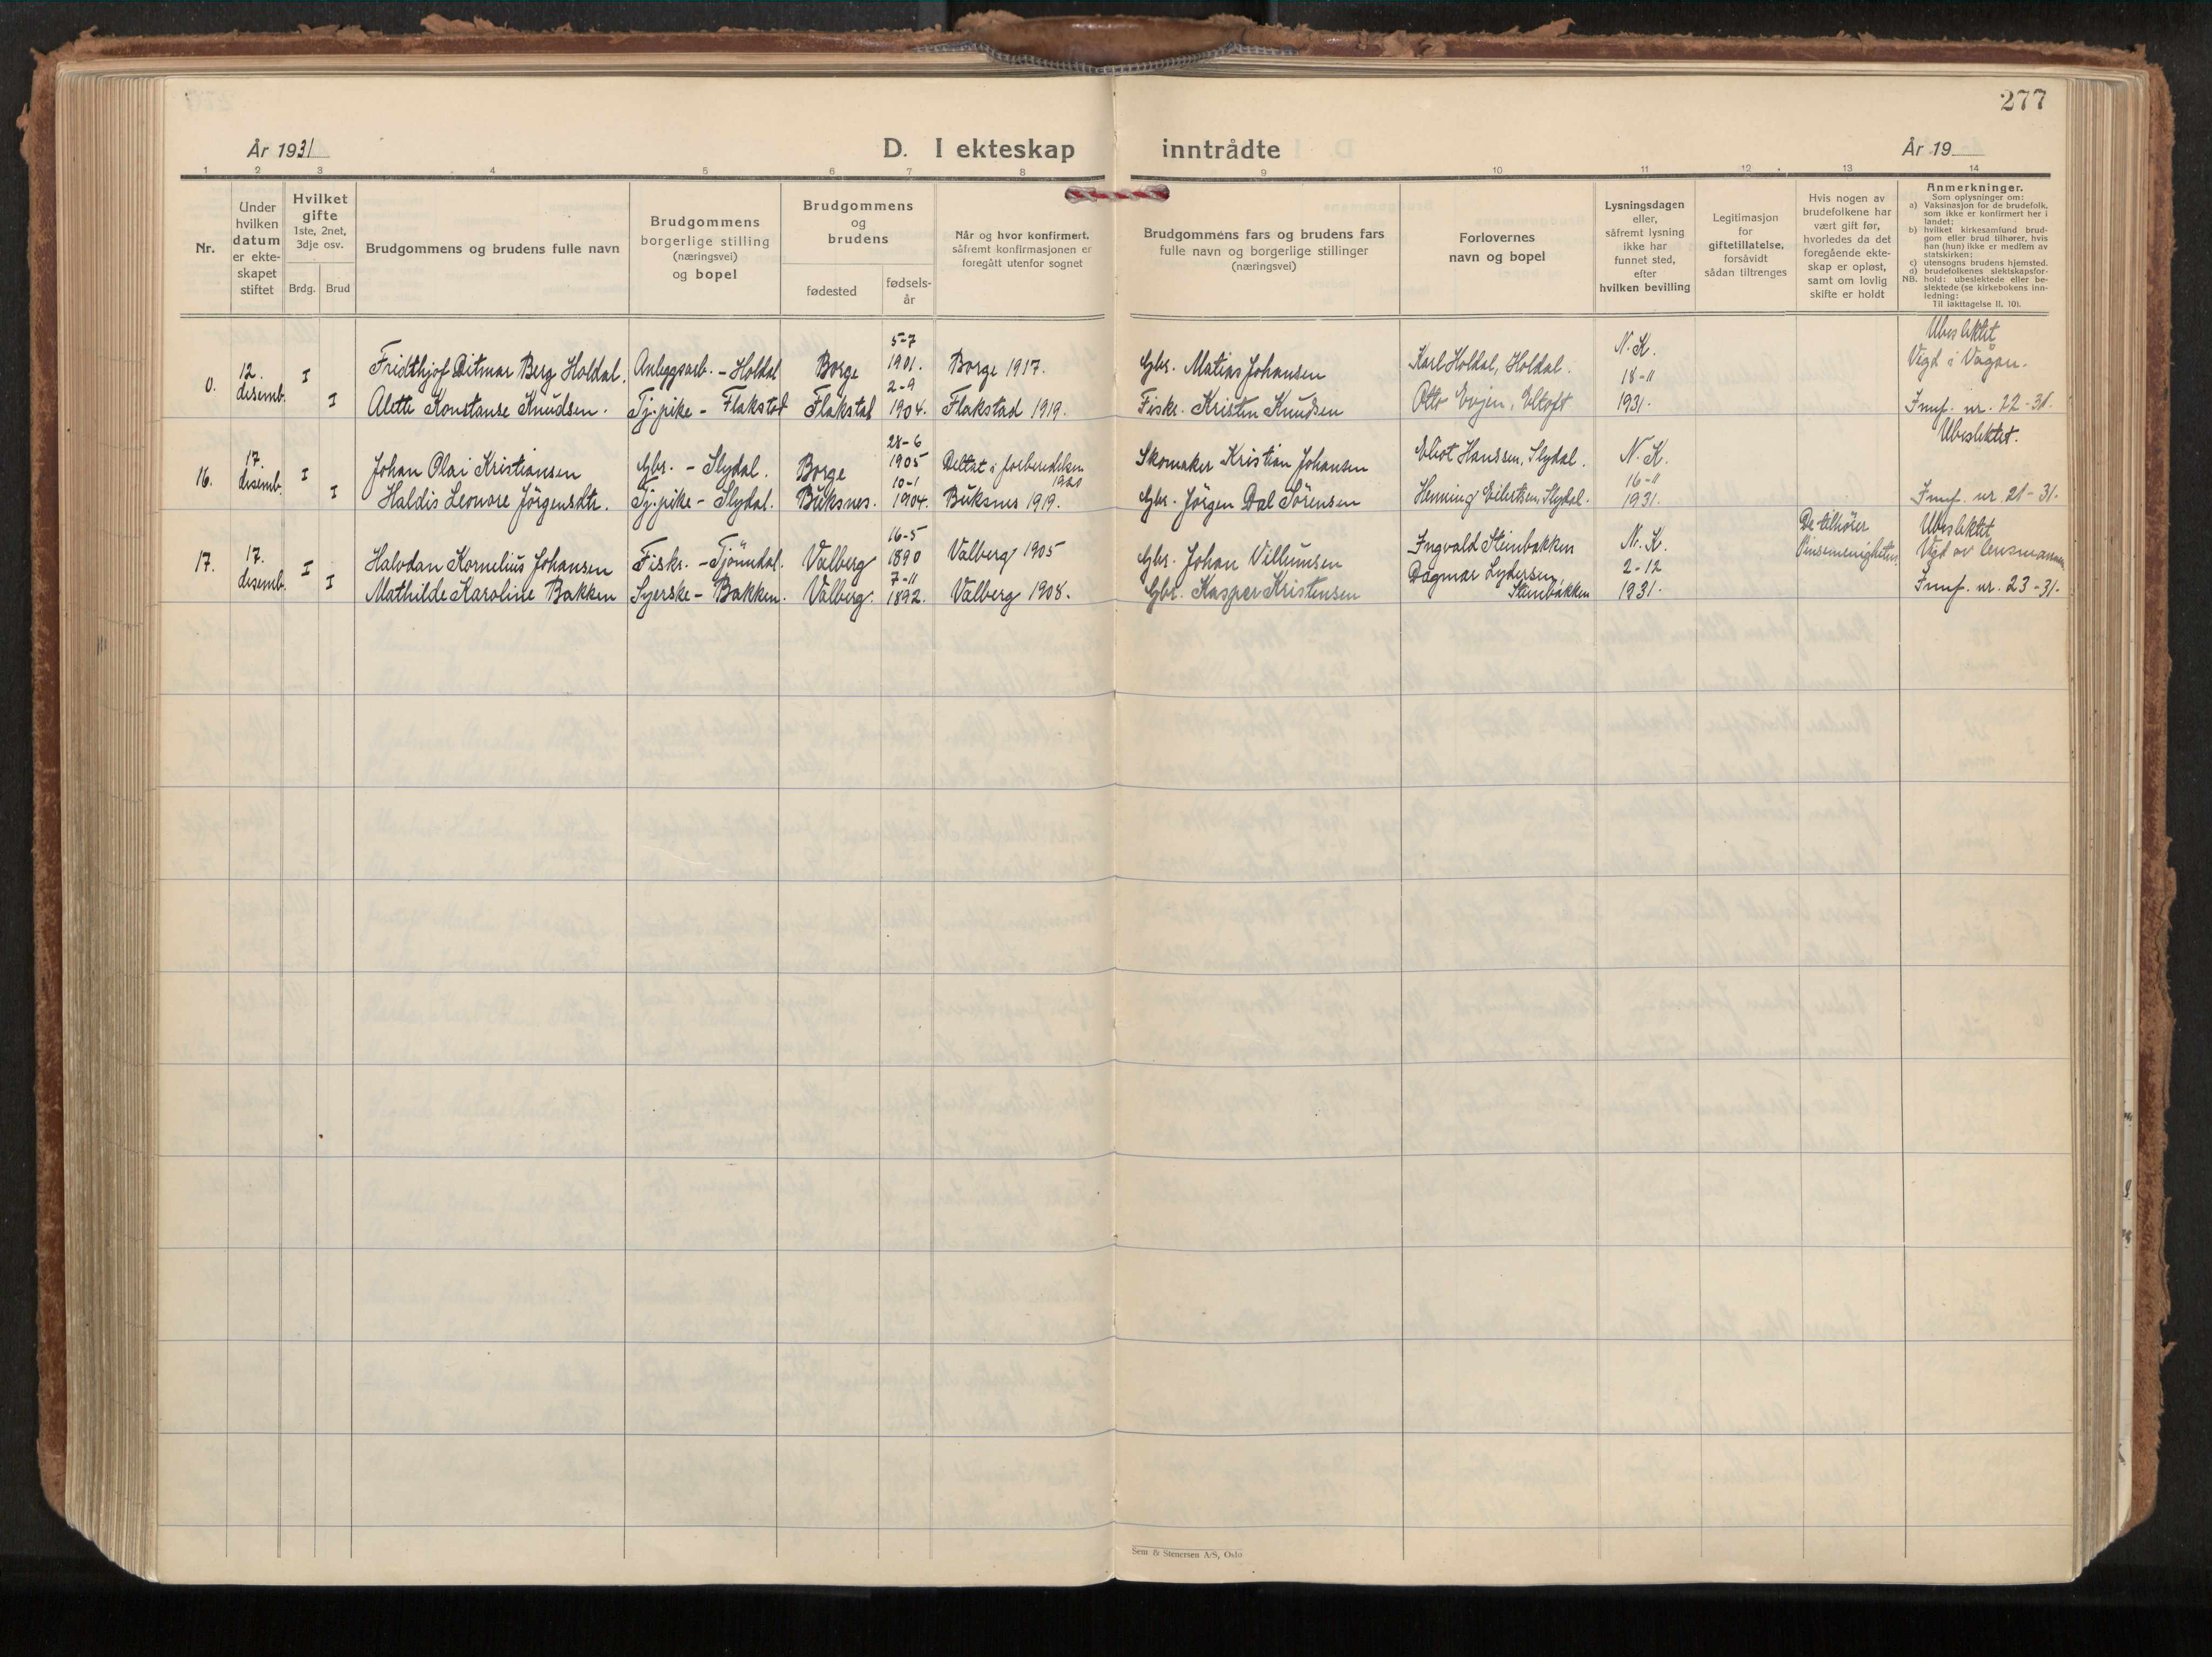 277
År 1931
D. I ekteskap inntrådte
År 19
1 2 3 4 5 6 7 8 9 10 11 12 13 14
Nr.
Under
hvilken
datum
er ekte-
skapet
stiftet
Hvilket
gifte
1ste, 2net,
3dje osv.
Brdg. Brud
Brudgommens og brudens fulle navn
Brudgommens
borgerlige stilling
(næringsvei)
og bopel
Brudgommens
og
brudens
fødested
fødsels-
år
Når og hvor konfirmert.
såfremt konfirmasjonen er
foregått utenfor sognet
Brudgommens fars og brudens fars
fulle navn og borgerlige stillinger
(næringsvei)
Forlovernes
navn og bopel
Lysningsdagen
eller,
såfremt lysning
ikke har
funnet sted,
efter
hvilken bevilling
Legitimasjon
for
giftetillatelse,
forsåvidt
sådan tiltrenges
Hvis nogen av
brudefolkene har
vært gift før,
hvorledes da det
foregående ekte-
skap er opløst,
samt om lovlig
skifte er holdt
Anmerkninger.
Som oplysninger om:
a) Vaksinasjon for de brudefolk,
som ikke er konfirmert her i
landet;
b) hvilket kirkesamfund brud-
gom eller brud tilhører, hvis
han (hun) ikke er medlem av
statskirken;
c) utensogns brudens hjemsted.
d) brudefolkenes slektskapsfor-
NB. hold: ubeslektede eller be-
slektede (se kirkebokens inn-
ledning:
Til iakttagelse II. 10).
0.
12.
desemb.
I
I
Fridthjof Ditmar Berg Holdal.
Alette Konstanse Knudsen.
Anleggsarb. - Holdal
Tj.pike - Flakstad
Borge
Flakstad
5-7
1901.
2-9
1904.
Borge 1917.
Flakstad 1919.
Gbr. Matias Johansen
Fiskr. Kristen Knudsen
Karl Holdal, Holdal.
Otto Evjen, Eltoft
N.K.
18-11
1931.
Ubeslektet
Vigd i Vågan.
Innf. nr. 22-31.
16.
17.
desemb.
I
I
Johan Olai Kristiansen
Haldis Leonore Jörgensdtr.
Gbr. - Slydal.
Tj.pike - Slydal.
Borge
Buksnes.
28-6
1905
10-1
1904.
Deltat i forberedelsen
1920
Buksnes 1919.
Skomaker Kristian Johansen
Gbr. Jörgen Dal Sörensen
Eliot Hanssen, Slydal.
Henning Eilertsen, Slydal.
N.K.
16-11
1931.
Ubeslektet.
Innf. nr. 21-31.
17.
17.
desemb.
I
I
Halvdan Kornelius Johansen
Mathilde Karoline Bakken
Fiskr. - Tjönndal.
Syerske - Bakken.
Valberg
Valberg.
16-5
1890
7-11
1892.
Valberg 1905
Valberg 1908.
Gbr. Johan Villumsen
Gbr. Kasper Kristensen
Ingvald Steinbakken
Dagmar Lydersen,
Steinbakken
N.K.
2-12
1931.
De tilhører
Pinsemenigheten.
Ubeslektet
Vigd av lensmannen
Innf. nr. 23-31.
Sem & Stenersen A/S, Oslo